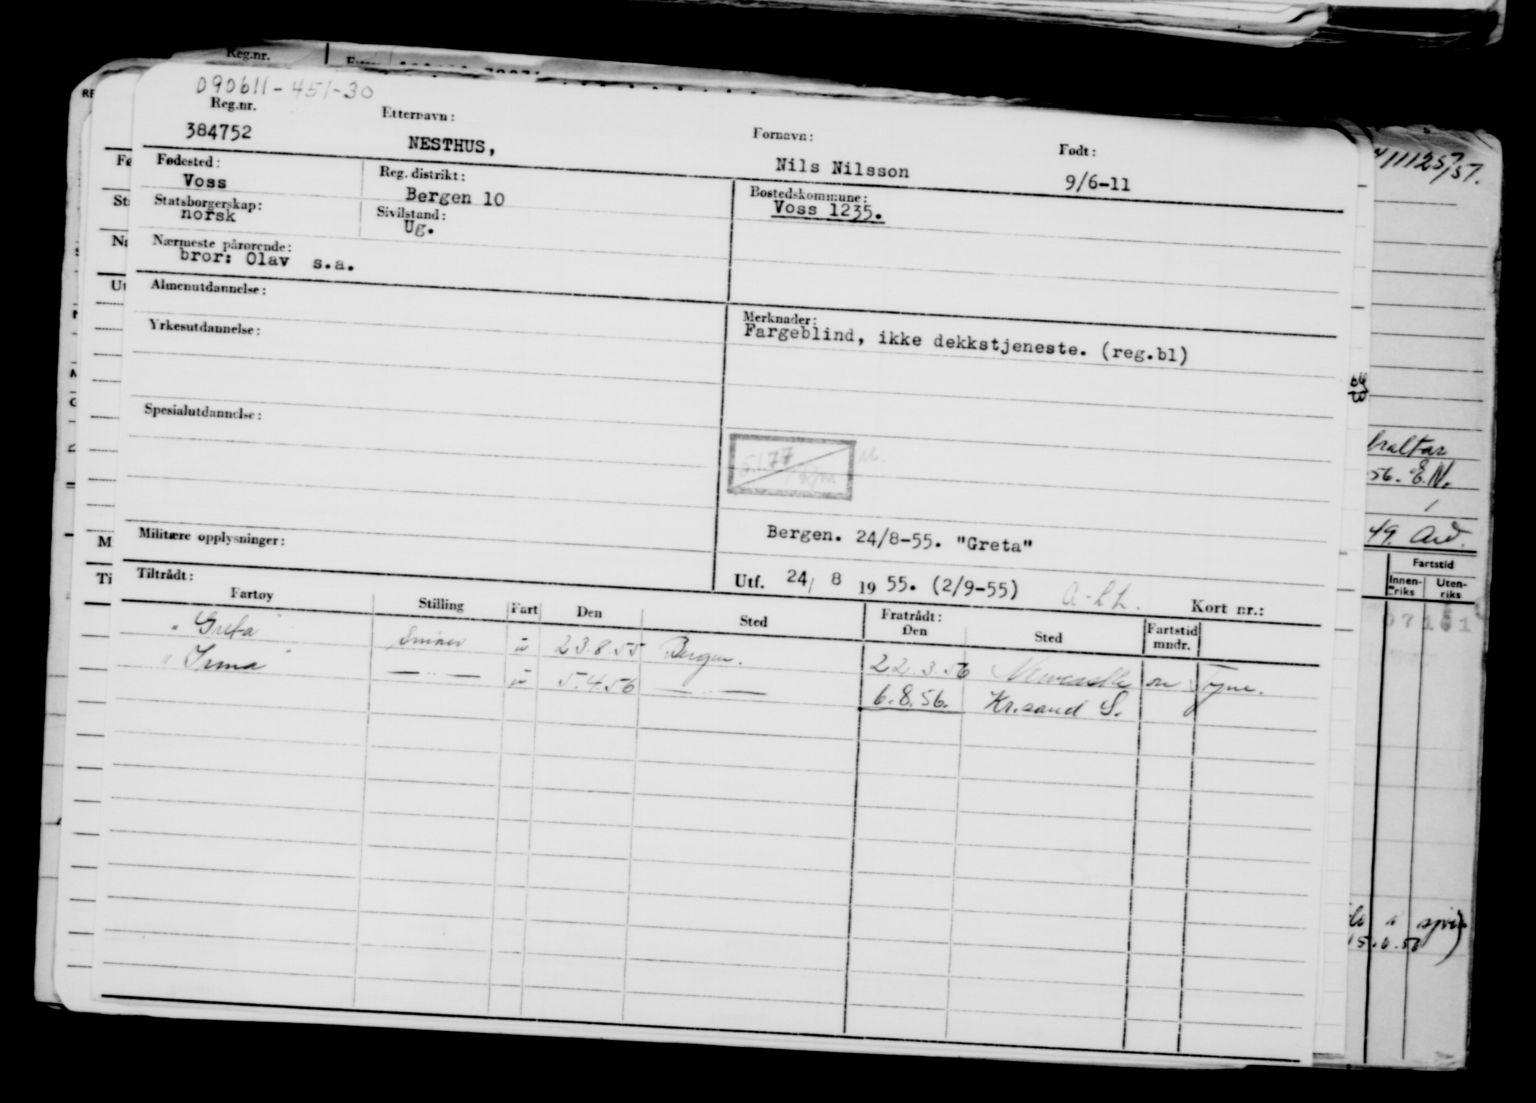 Reg.nr.
090611-451-30
Reg.nr. Etternavn: Fornavn: Født:
384752 NESTHUS, Nils Nilsson 9/6-11
Fødested: Reg. distrikt: Bostedskommune:
Voss Bergen 10 Voss 1235.
Statsborgerskap: Sivilstand:
norsk Ug.
Nærmeste pårørende:
bror: Olav s.a.
Almenutdannelse:
Merknader:
Yrkesutdannelse: Fargeblind, ikke dekkstjeneste. (reg.bl)
Spesialutdannelse:
Militære opplysninger: Bergen. 24/8-55. "Greta"
Utf. 24/ 8 19 55. (2/9-55) Kort nr.:
Tiltrådt: Fratrådt:
Fartøy Stilling Fart Den Sted Den Sted Fartstid mndr.
"Greta" Smører u 23.8.55 Bergen. 22.3.56 Newcastle on Tyne.
"Irma" — " — u 5.4.56 — " — 6.8.56. Kr.sand S.
56. E.N.
49.
Fartstid
Innenriks Utenriks